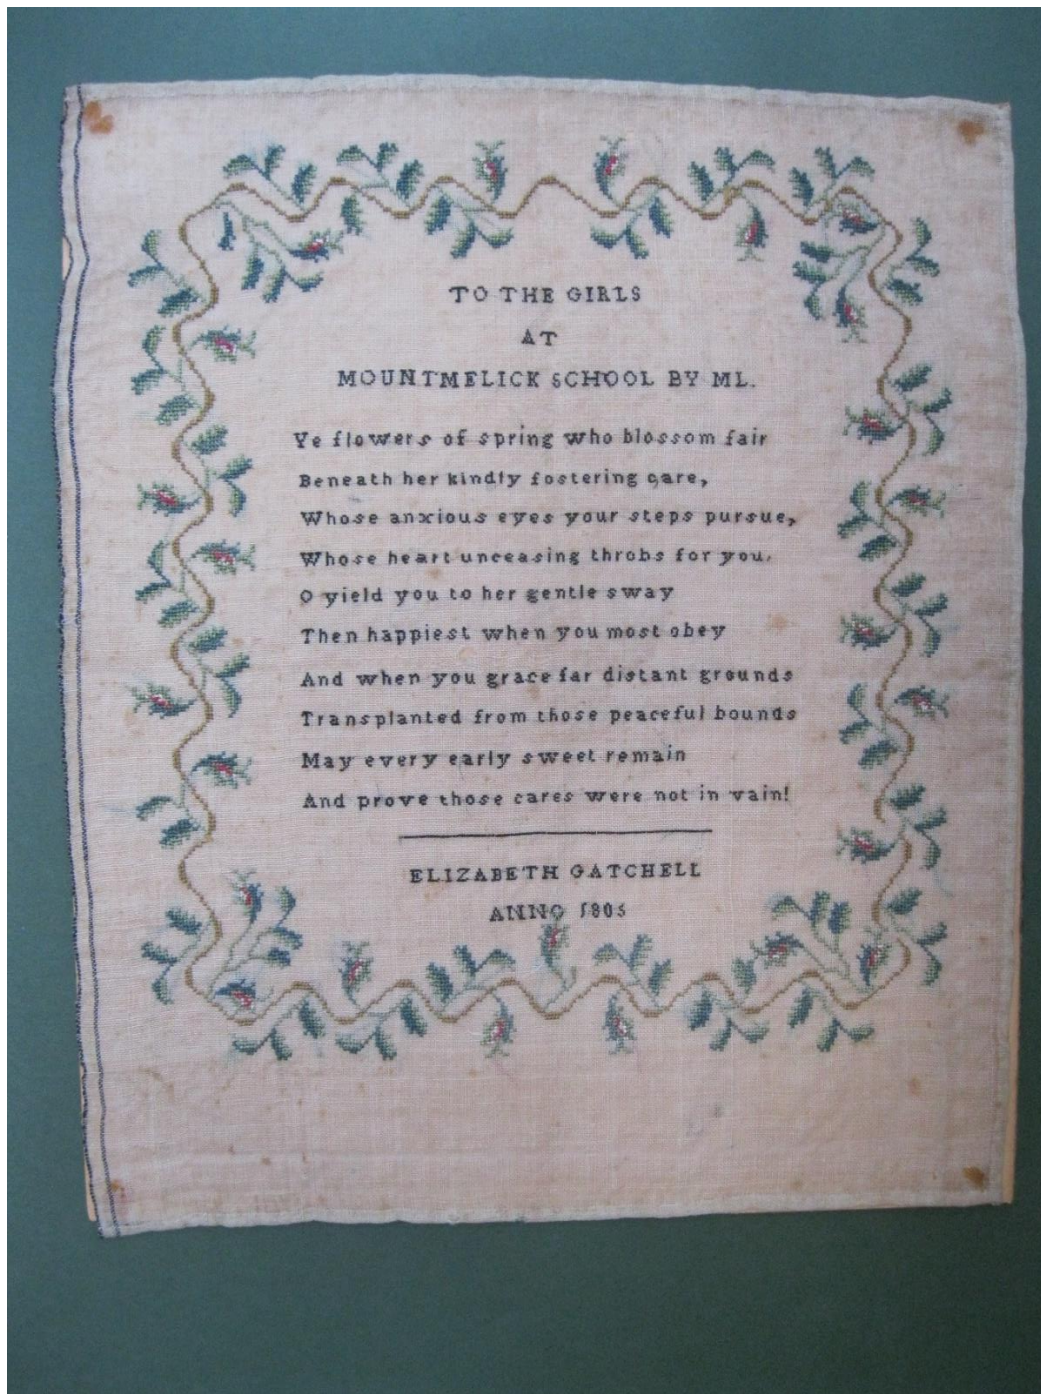 TO THE GIRLS
AT
MOUNTMELICK SCHOOL BY ML.
Ye flowers of spring who blossom fair
Beneath her kindly fostering care,
Whose anxious eyes your steps pursue,
Whose heart unceasing throbs for you.
O yield you to her gentle sway
Then happiest when you most obey
And when you grace far distant grounds
Transplanted from those peaceful bounds
May every early sweet remain
And prove those cares were not in vain!
ELIZABETH GATCHELL
ANNO 1805